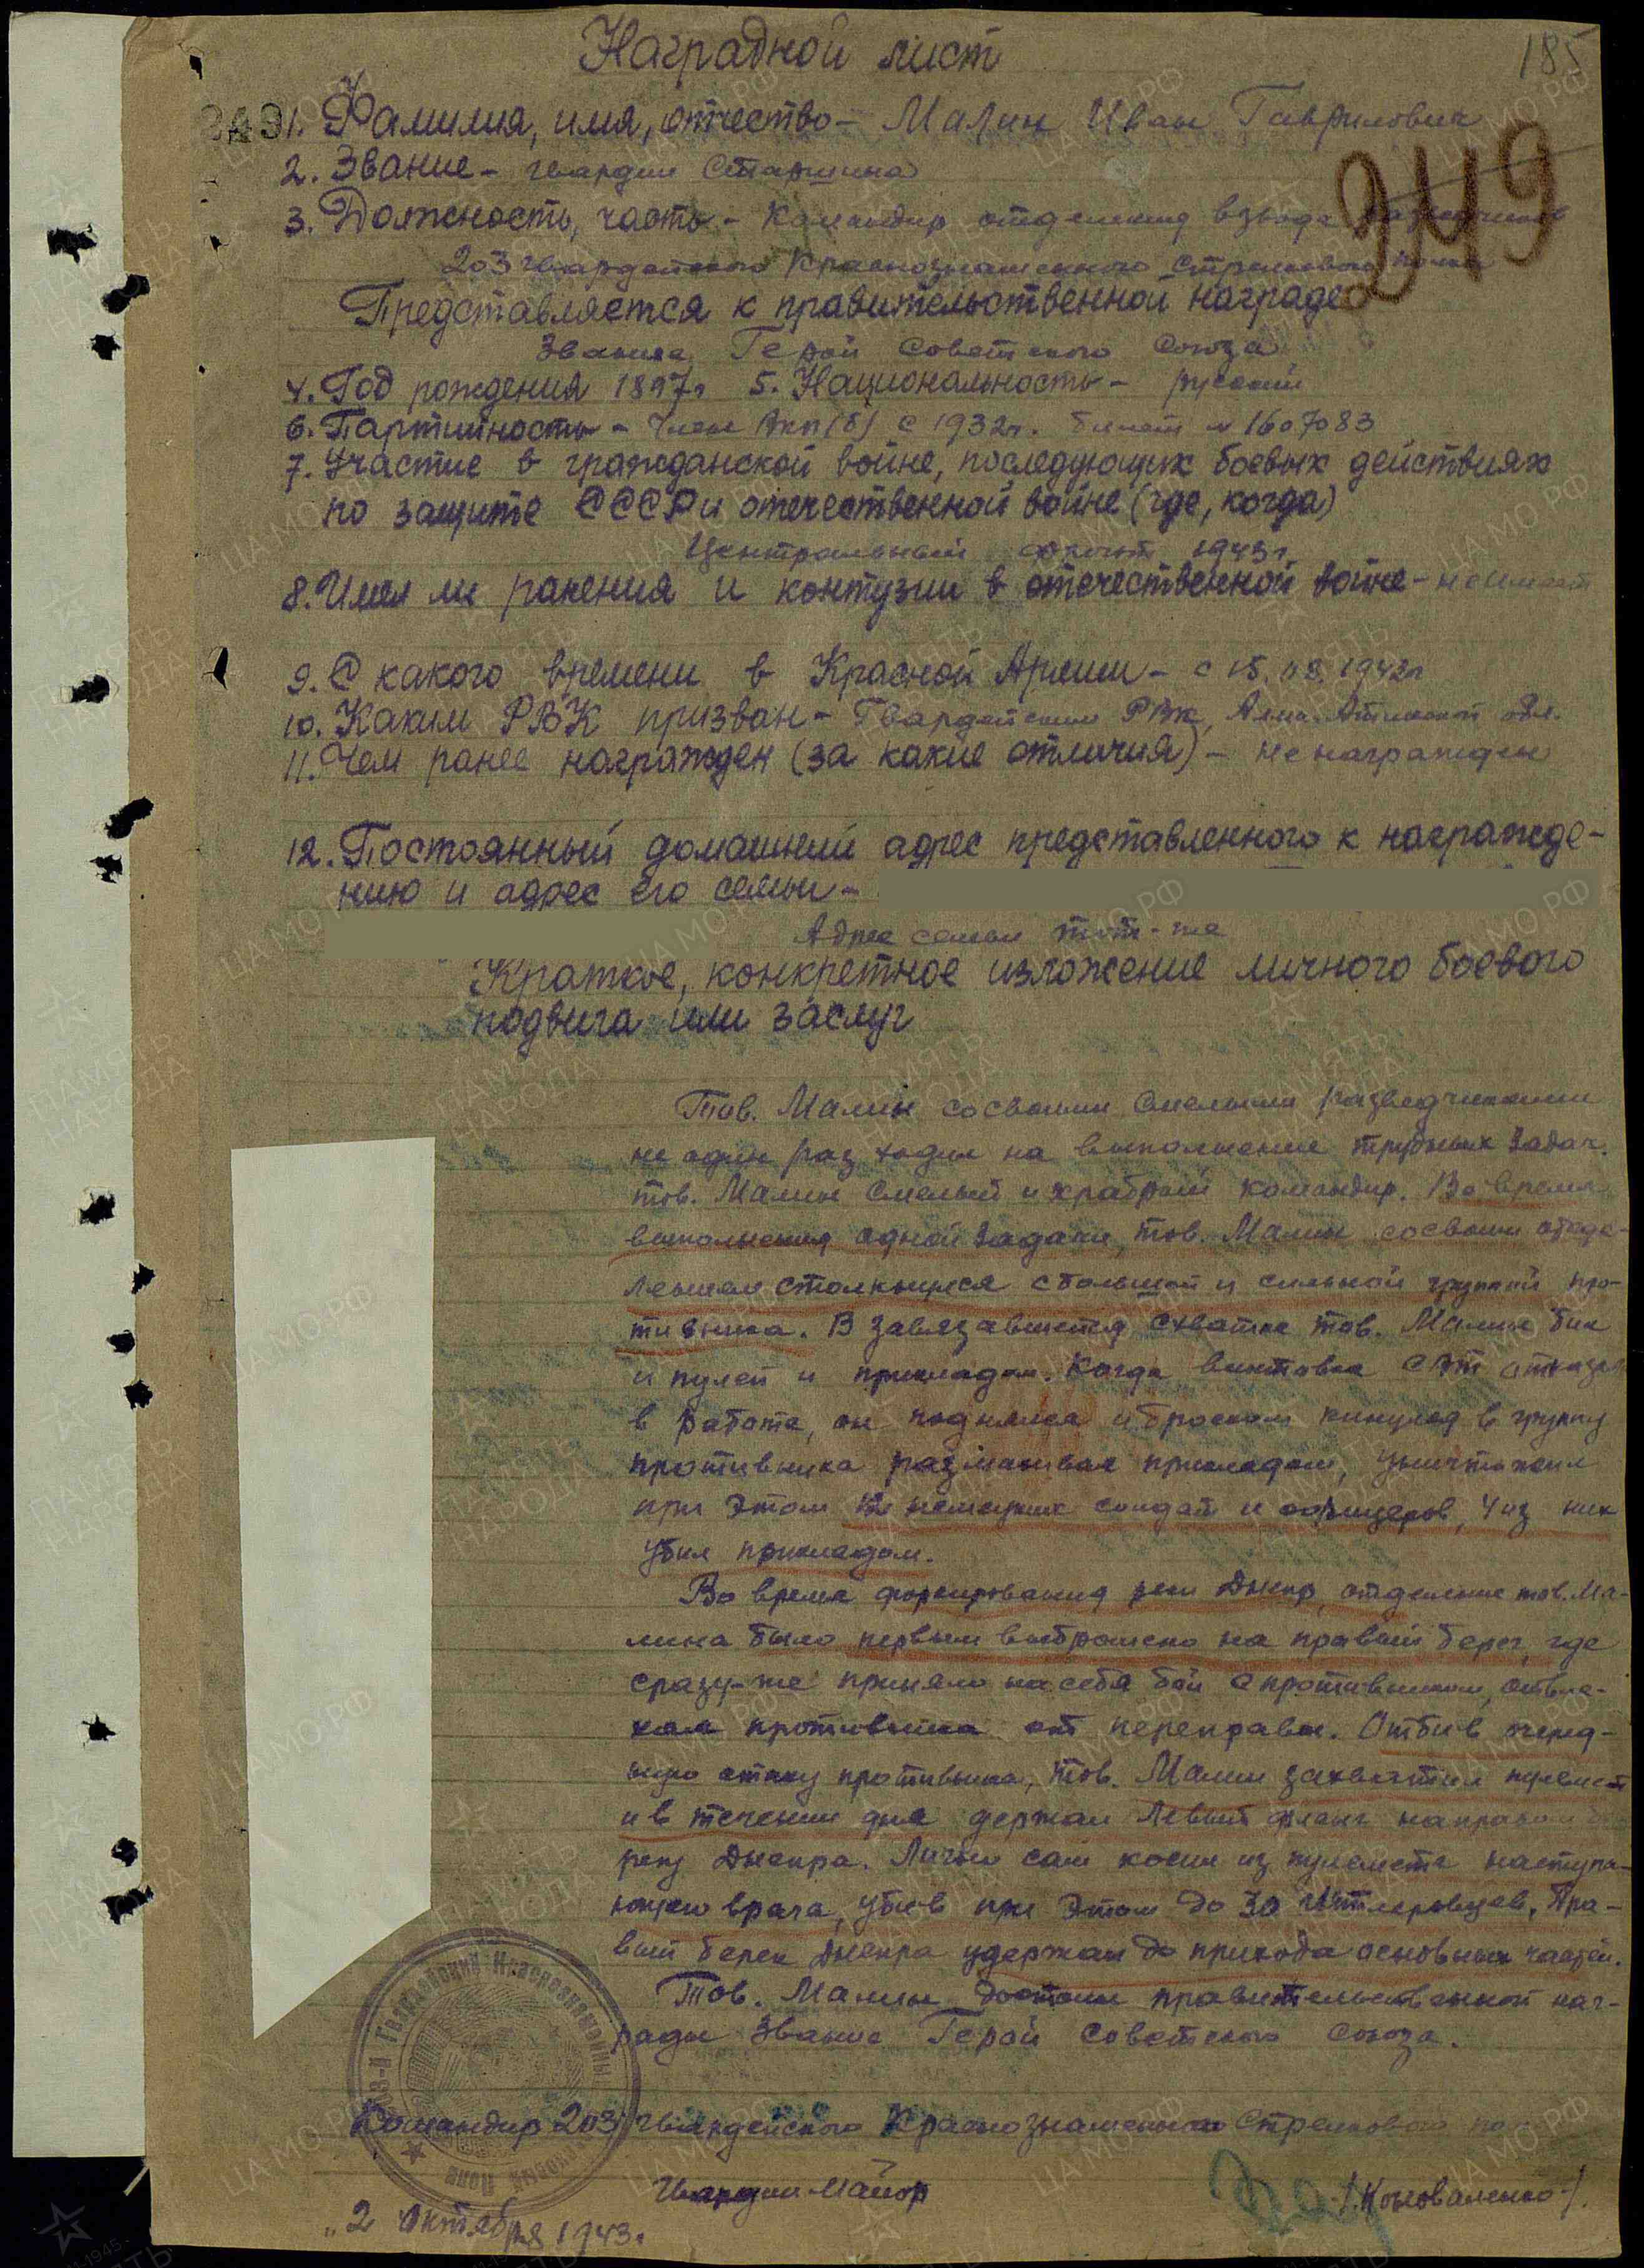 185
Наградной лист
249
1. Фамилия, имя, отчество – Малин Иван Гаврилович
2. Звание – гвардии Старшина
3. Должность, часть – Командир отделения взвода разведчиков
203 гвардейского Краснознаменного стрелкового полка
Представляется к правительственной награде
Звания Герой Советского Союза
4. Год рождения 1897г 5. Национальность – русский
6. Партийность – Член ВКП(б) с 1932г. билет № 1607083
7. Участие в гражданской войне, последующих боевых действиях
по защите СССР и отечественной войне (где, когда)
Центральный фронт 1943г
8. Имел ли ранения и контузии в отечественной войне – не имеет
9. С какого времени в Красной Армии – с 15.08.1942г
10. Каким РВК призван – Гвардейским РВК, Алма-Атинской обл.
11. Чем ранее награжден (за какие отличия) – не награжден
12. Постоянный домашний адрес представленного к награжде-
нию и адрес его семьи –
Адрес семьи тот-же
Краткое, конкретное изложение личного боевого
подвига или заслуг
Тов. Малин со своими смелыми разведчиками
не один раз ходил на выполнение трудных задач.
тов. Малин смелый и храбрый командир. Во время
выполнения одной задачи, тов. Малин со своим отде-
лением столкнулся с большой и сильной группой про-
тивника. В завязавшейся схватке тов. Малин бил
и пулей и прикладом. Когда винтовка СВТ отказала
в работе, он поднялся и броском кинулся в группу
противника размахивая прикладом, уничтожил
при этом немецких солдат и офицеров, 4 из них
убил прикладом.
Во время форсирования реки Днепр, отделение тов. Ма-
лина было первым выброшено на правый берег, где
сразу-же приняло на себя бой с противником, отвле-
кая противника от переправы. Отбив очеред-
ную атаку противника, тов. Малин захватил пулемет
и в течении дня держал левый фланг на правом
реки Днепра. Лично сам косил из пулемета наступа-
ющего врага, убив при этом до 30 гитлеровцев. Пра-
вый берег Днепра удержал до прихода основных частей.
Тов. Малин достоин правительственной наг-
рады звание Герой Советского Союза.
Командир 203 гвардейского Краснознаменного Стрелкового по
Гвардии Майор /Коноваленко/.
„2 октября 1943г
203-й Гвардейский Краснознаменный Стрелковый Полк
ЦА МО РФ
ПАМЯТЬ НАРОДА